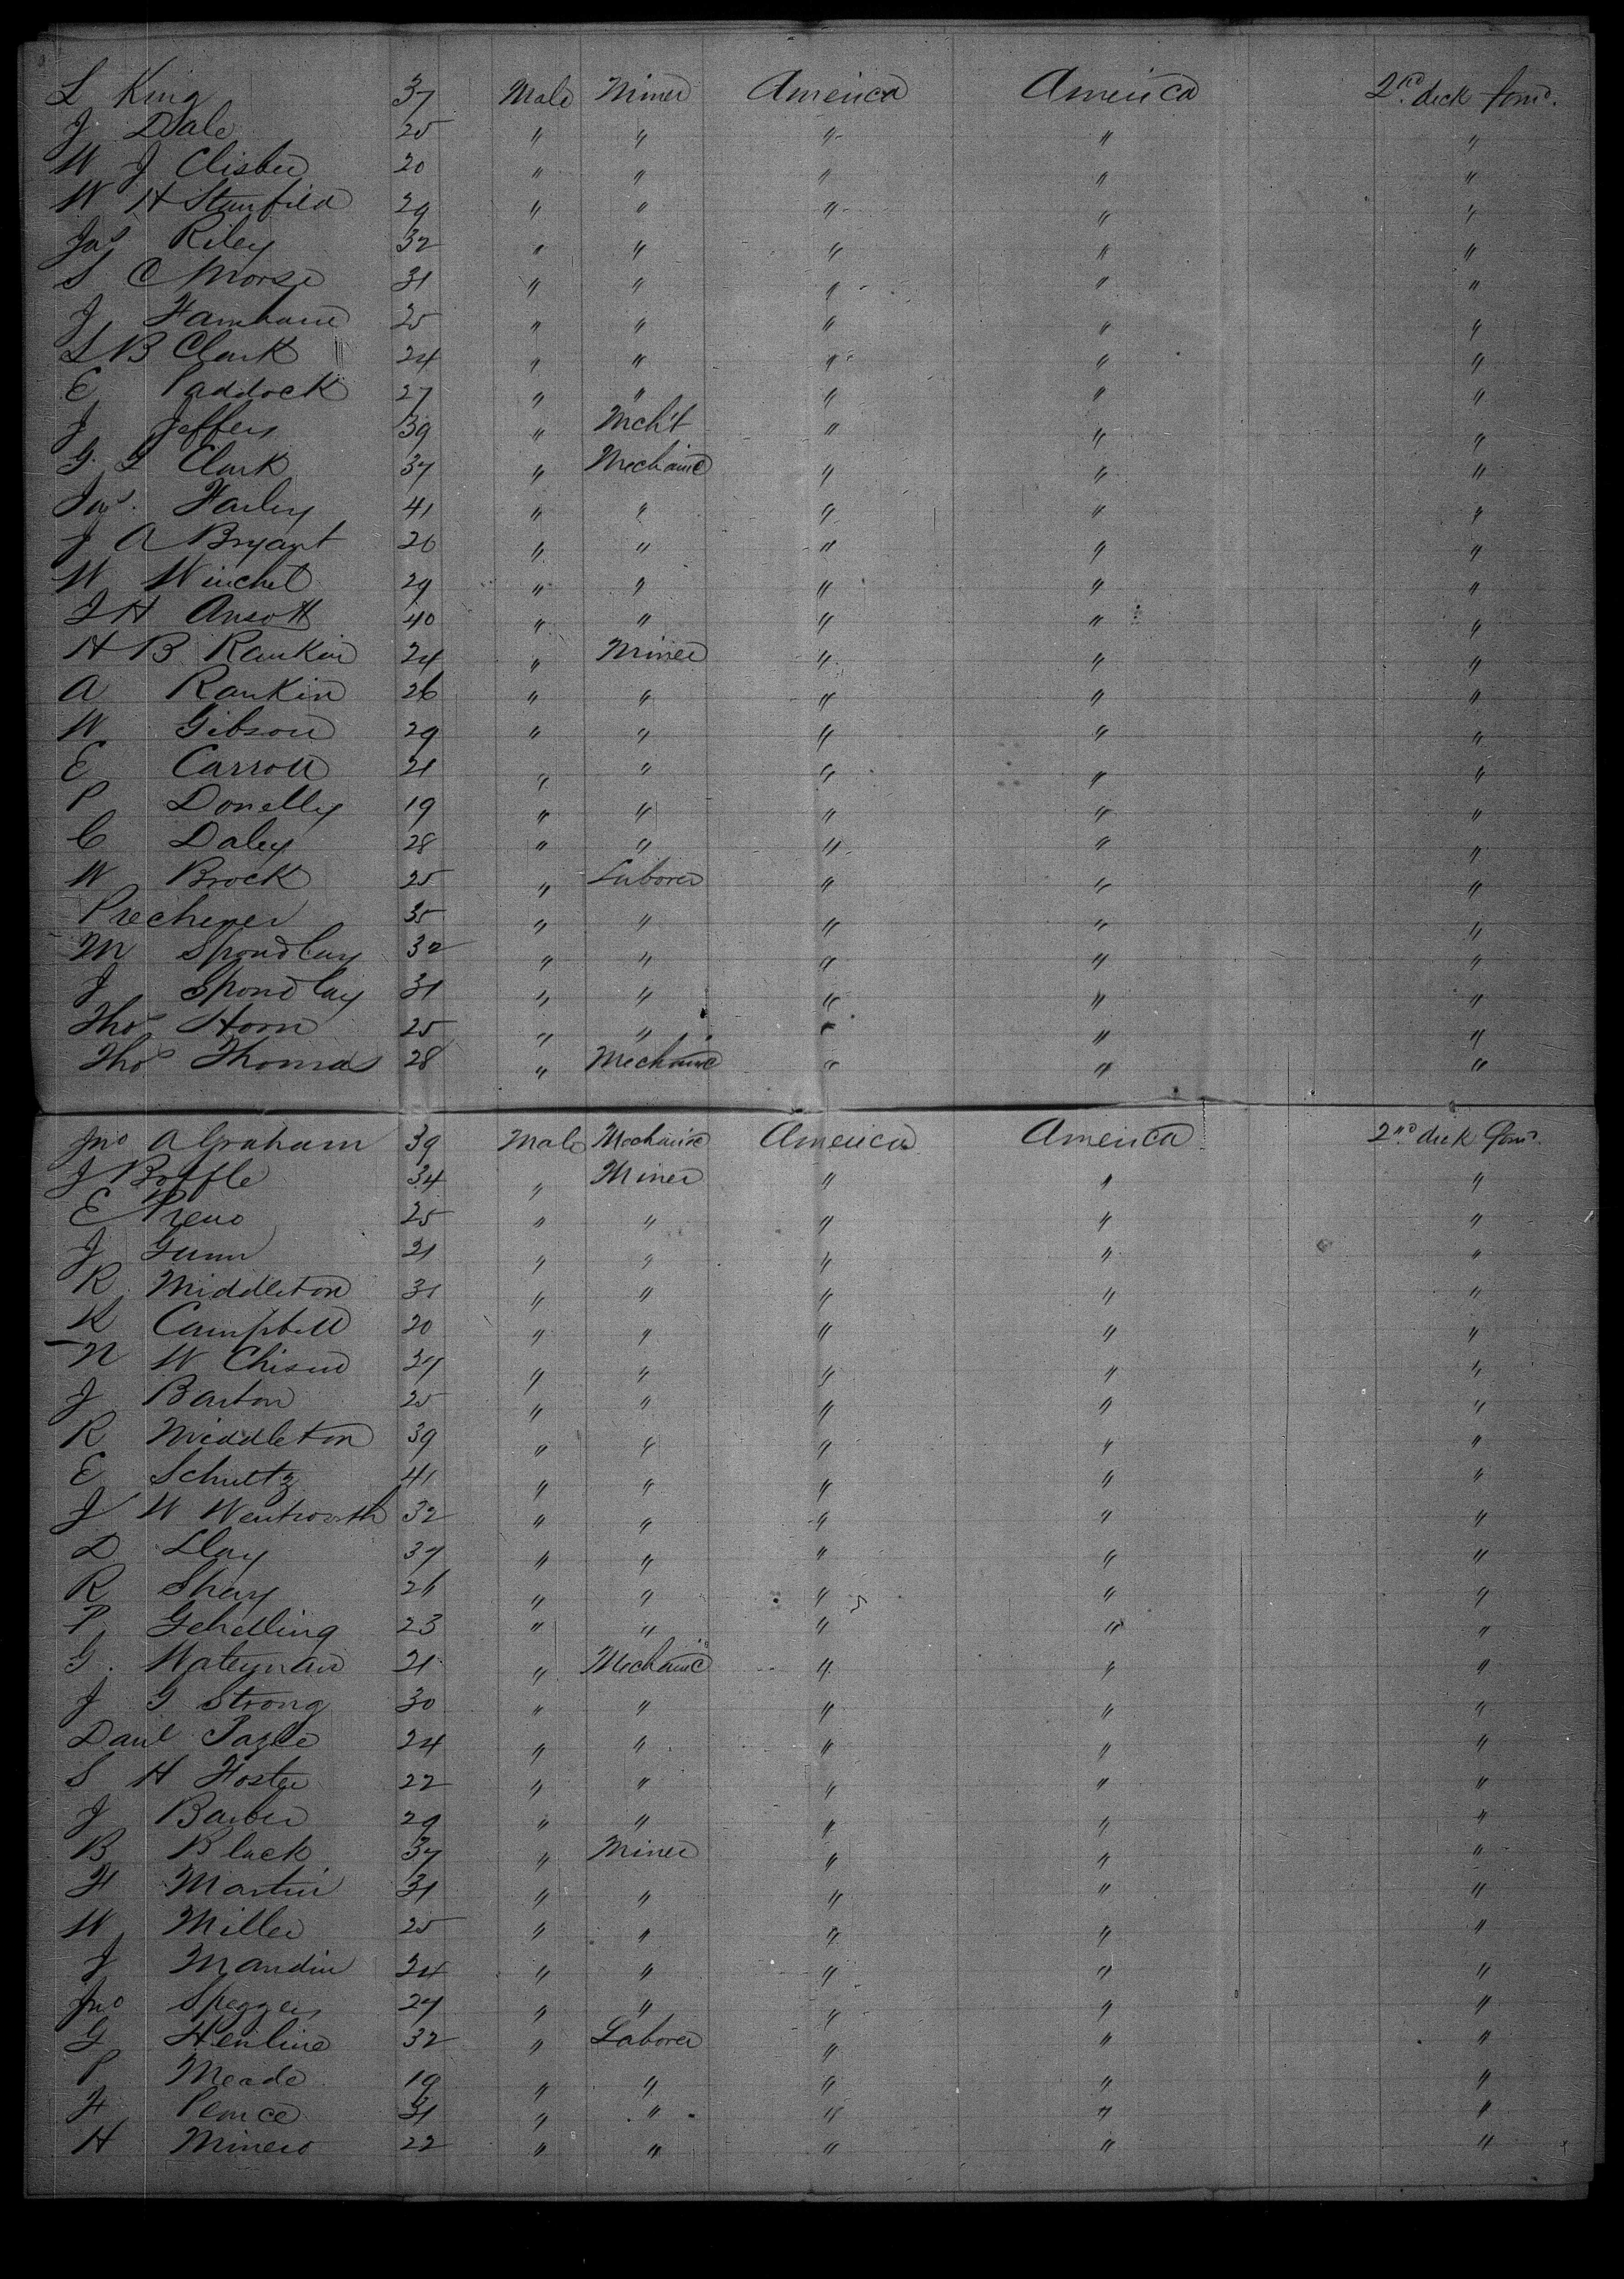 L King 37 Male Miner America America 2nd deck forwd.
J Dale 25 " " " " "
W J Clisbee 20 " " " " "
W H Stanfield 29 " " " " "
Jas Riley 32 " " " " "
S C Morse 31 " " " " "
J Farnham 25 " " " " "
L B Clark 24 " " " " "
E Paddock 27 " " " " "
J Jeffers 39 " Mcht " " "
G. L Clark 37 " Mechanic " " "
Jas. Farley 41 " " " " "
J A Bryant 26 " " " " "
W Winchel 29 " " " " "
J H Ansott 40 " " " " "
H B Rankin 24 " Miner " " "
A Rankin 26 " " " " "
W Gibson 29 " " " " "
E Carroll 21 " " " " "
P Donelly 19 " " " " "
C Daley 28 " " " " "
W Brock 25 " Laborer " " "
35 " " " " "
M Spondlay 32 " " " " "
J Spondlay 31 " " " " "
Thos Horn 25 " " " " "
Thos Thomas 28 " Mechanic " " "
Jno A Graham 39 Male Mechanic America America 2nd deck forwd.
J 34 " Miner " " "
E Preno 25 " " " " "
J Gunn 21 " " " " "
R Middleton 31 " " " " "
K Campbell 20 " " " " "
N W Chism 27 " " " " "
J Barton 25 " " " " "
R Middleton 39 " " " " "
E Schultz 41 " " " " "
J W Wentworth 32 " " " " "
D 37 " " " " "
R Shay 26 " " " " "
P Gehelling 23 " " " " "
G. Wateman 21 " Mechanic " " "
J G Strong 30 " " " " "
Danl 24 " " " " "
S H Foster 22 " " " " "
J Barber 29 " " " " "
B Black 37 " Miner " " "
F Martin 31 " " " " "
W Miller 25 " " " " "
J Mandin 24 " " " " "
Jno Speggers 27 " " " " "
G Henline 32 " Laborer " " "
P Meade 19 " " " " "
F Pence 31 " " " " "
H Minero 22 " " " " "